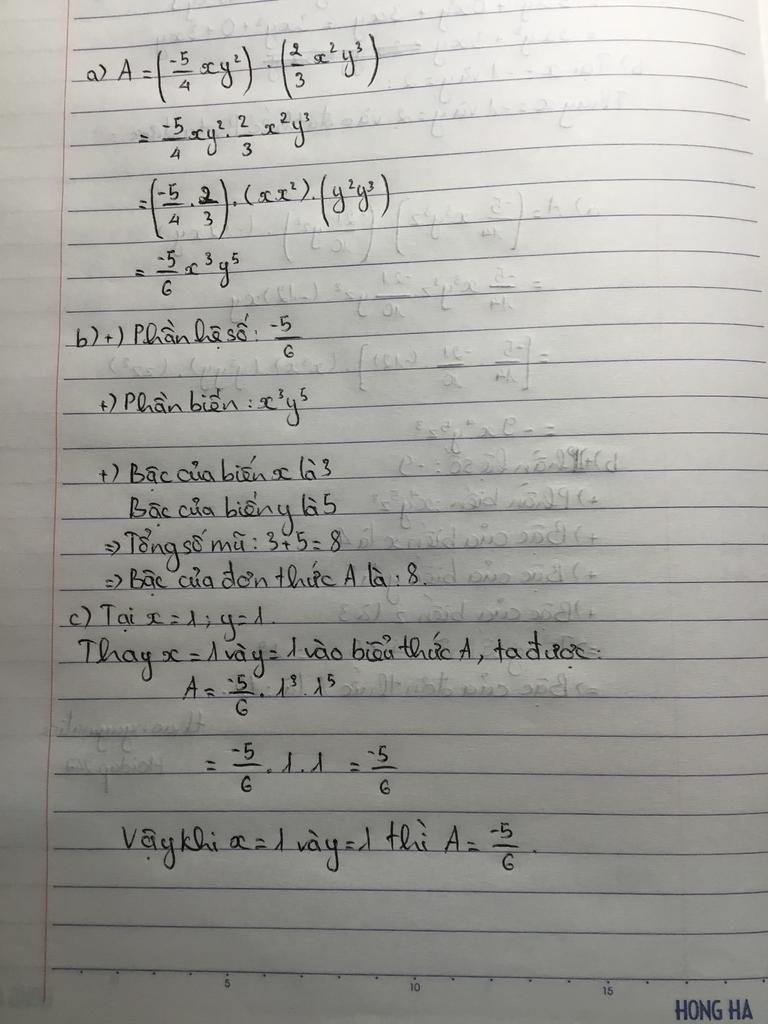 a) A = (-5/4 xy²) . (2/3 x²y³)
= -5/4 xy² . 2/3 x²y³
= (-5/4 . 2/3) . (xx²) . (y²y³)
= -5/6 x³y⁵
b) +) Phần hệ số : -5/6
+) Phần biến : x³y⁵
+) Bậc của biến x là 3
Bậc của biến y là 5
=> Tổng số mũ : 3 + 5 = 8
=> Bậc của đơn thức A là : 8.
c) Tại x = 1 ; y = 1.
Thay x = 1 và y = 1 vào biểu thức A, ta được :
A = -5/6 . 1³ . 1⁵
= -5/6 . 1 . 1 = -5/6
Vậy khi x = 1 và y = 1 thì A = -5/6 .
5 10 15
HONG HA